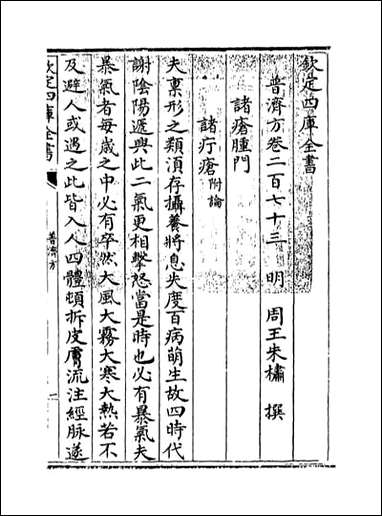 欽定四庫全書
普濟方卷二百七十三　明　周王朱橚　撰
諸瘡腫門
諸疔瘡附論
夫禀形之類須存攝養將息失度百病萌生故四時代
謝陰陽遞興此二氣更相擊怒當是時也必有暴氣夫
暴氣者每歲之中必有卒然大風大霧大寒大熱若不
及避人或遇之此皆入人四體頓折皮膚流注經脉遂
欽定四庫全書
普濟方
一